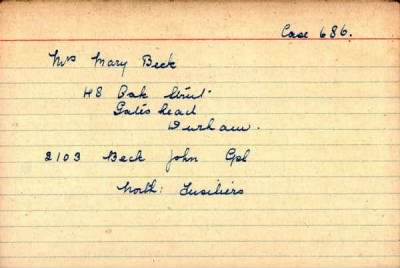 Case 686.
Mrs Mary Beck
48 Oak Street
Gateshead
Durham.
2103 Beck John Cpl
North: Fusiliers